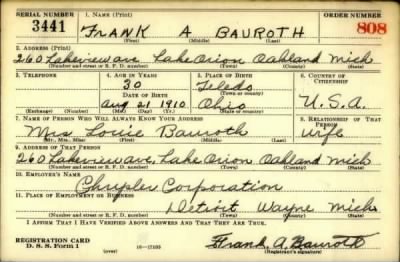 SERIAL NUMBER 1. NAME (Print) ORDER NUMBER
3441 FRANK A BAUROTH 808
(First) (Middle) (Last)
2. ADDRESS (Print)
260 Lakeview ave. Lake Orion Oakland Mich
(Number and street or R. F. D. number) (Town) (County) (State)
3. TELEPHONE 4. AGE IN YEARS 5. PLACE OF BIRTH 6. COUNTRY OF CITIZENSHIP
30 Toledo
DATE OF BIRTH (Town or county)
Aug 21 1910 Ohio U.S.A.
(Exchange) (Number) (Mo.) (Day) (Yr.) (State or country)
7. NAME OF PERSON WHO WILL ALWAYS KNOW YOUR ADDRESS 8. RELATIONSHIP OF THAT PERSON
Mrs Louie Bauroth wife
(Mr., Mrs., Miss) (First) (Middle) (Last)
9. ADDRESS OF THAT PERSON
260 Lakeview ave, Lake Orion Oakland Mich
(Number and street or R. F. D. number) (Town) (County) (State)
10. EMPLOYER'S NAME
Chrysler Corporation
11. PLACE OF EMPLOYMENT OR BUSINESS
Detroit Wayne Mich
(Number and street or R. F. D. number) (Town) (County) (State)
I AFFIRM THAT I HAVE VERIFIED ABOVE ANSWERS AND THAT THEY ARE TRUE.
REGISTRATION CARD
D. S. S. Form 1 16—17105 Frank. A. Bauroth
(Registrant's signature)